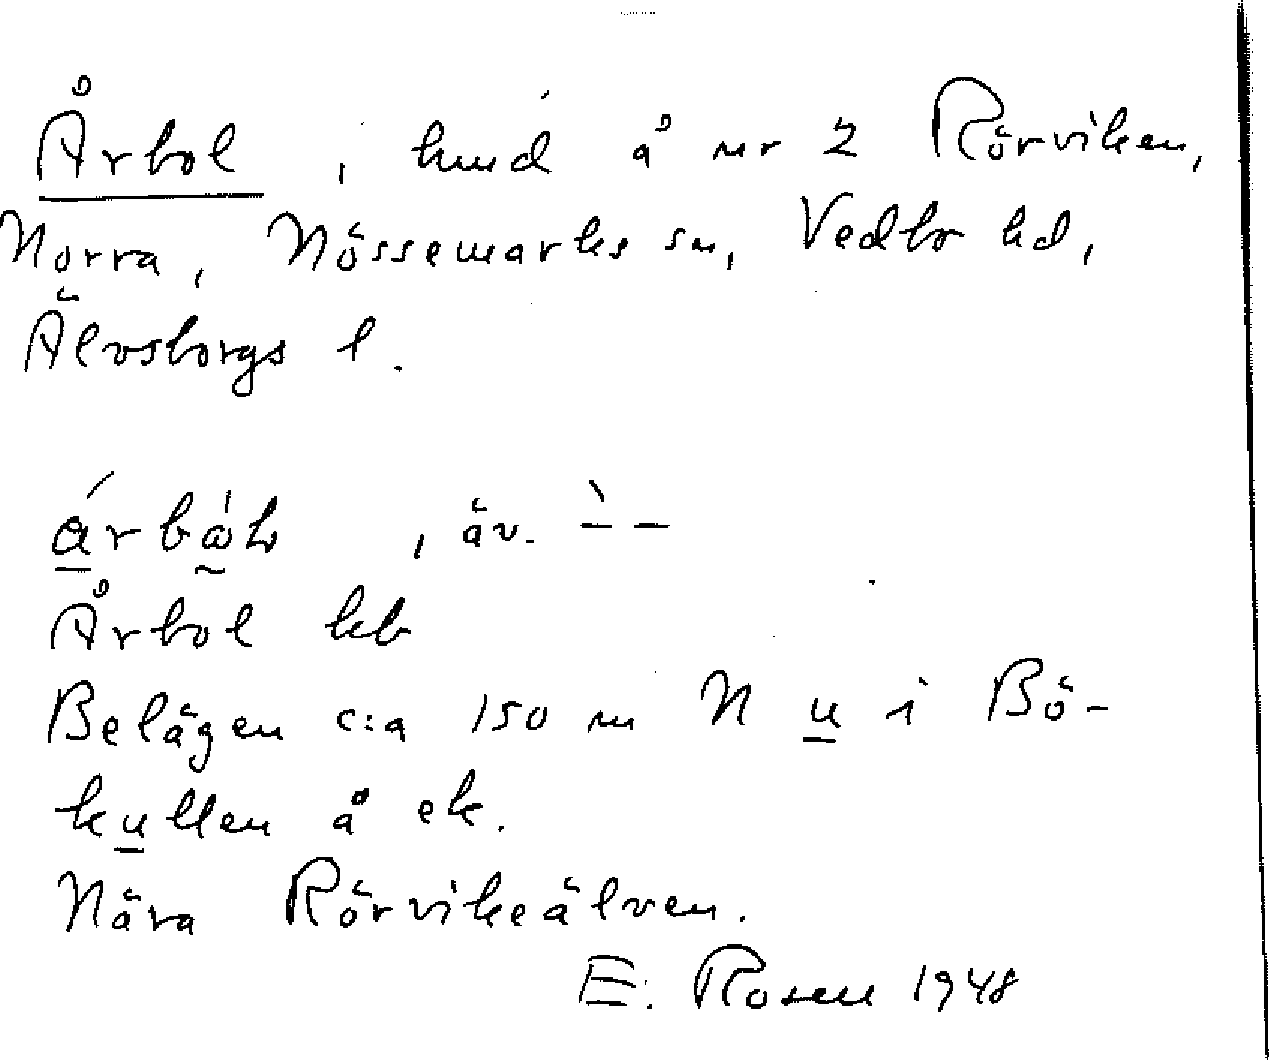 Årbol, hmd å nr 2 Rörviken,
Norra, Nössemarks sn, Vedbo hd,
Älvsborgs l.
, äv. ` – –
Årbol kb
Belägen c:a 150 m N u i Bö-
kullen å ek.
Nära Rörvikeälven.
E. Rosen 1948